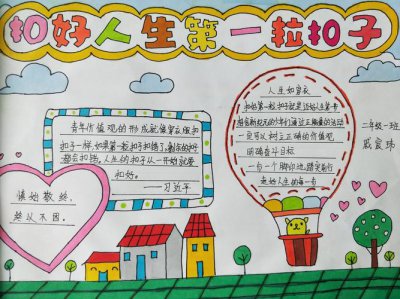 扣好人生第一拉扣子
青年价值观的形成就像穿衣服扣
扣子一样,如果第一粒扣子扣错了,剩余的扣子
都会扣错。人生的扣子从一开始就要
扣好。
——习近平
慎始敬终,
终以不困。
人生如穿衣
扣好第一粒扣子就是迈好人生第一步
一旦可以树立正确的价值观
明确奋斗目标
一步一个脚印地踏实前行
走好人生的每一步
二年级一班